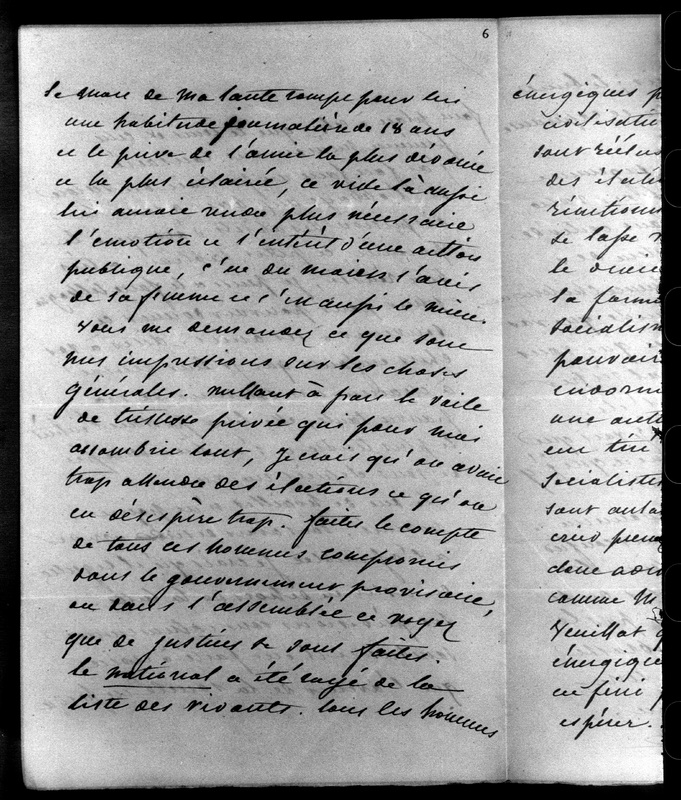 6
la mort de ma tante rompt pour lui
une habitude journalière de 18 ans
et le prive de l'amie la plus dévouée
et la plus éclairée, ce vide là aussi
lui aurait rendu plus nécessaire
l'émotion et l'intérêt d'une action
publique, c'est du moins l'avis
de sa femme et c'est aussi le mien.
Vous me demandez ce que sont
mes impressions sur les choses
générales. mettant à part le voile
de tristesse privée qui pour moi
assombrit tout, je crois qu'on avait
trop attendu des élections et qu'on
en désespère trop. faites le compte
de tous ces hommes compromis
dans le gouvernement provisoire,
ou dans l'assemblée et voyez
que de justices se sont faites.
le national a été rayé de la
liste des vivants. tous les hommes
énergiques p
civilisatio
sont réélus
des électi
réunions
se lasse
la forme
socialism
pouvoir
endormi
une aut
socialistes
sont auta
donc
comme M
Veuillot q
énergique
en fini p
espérer.